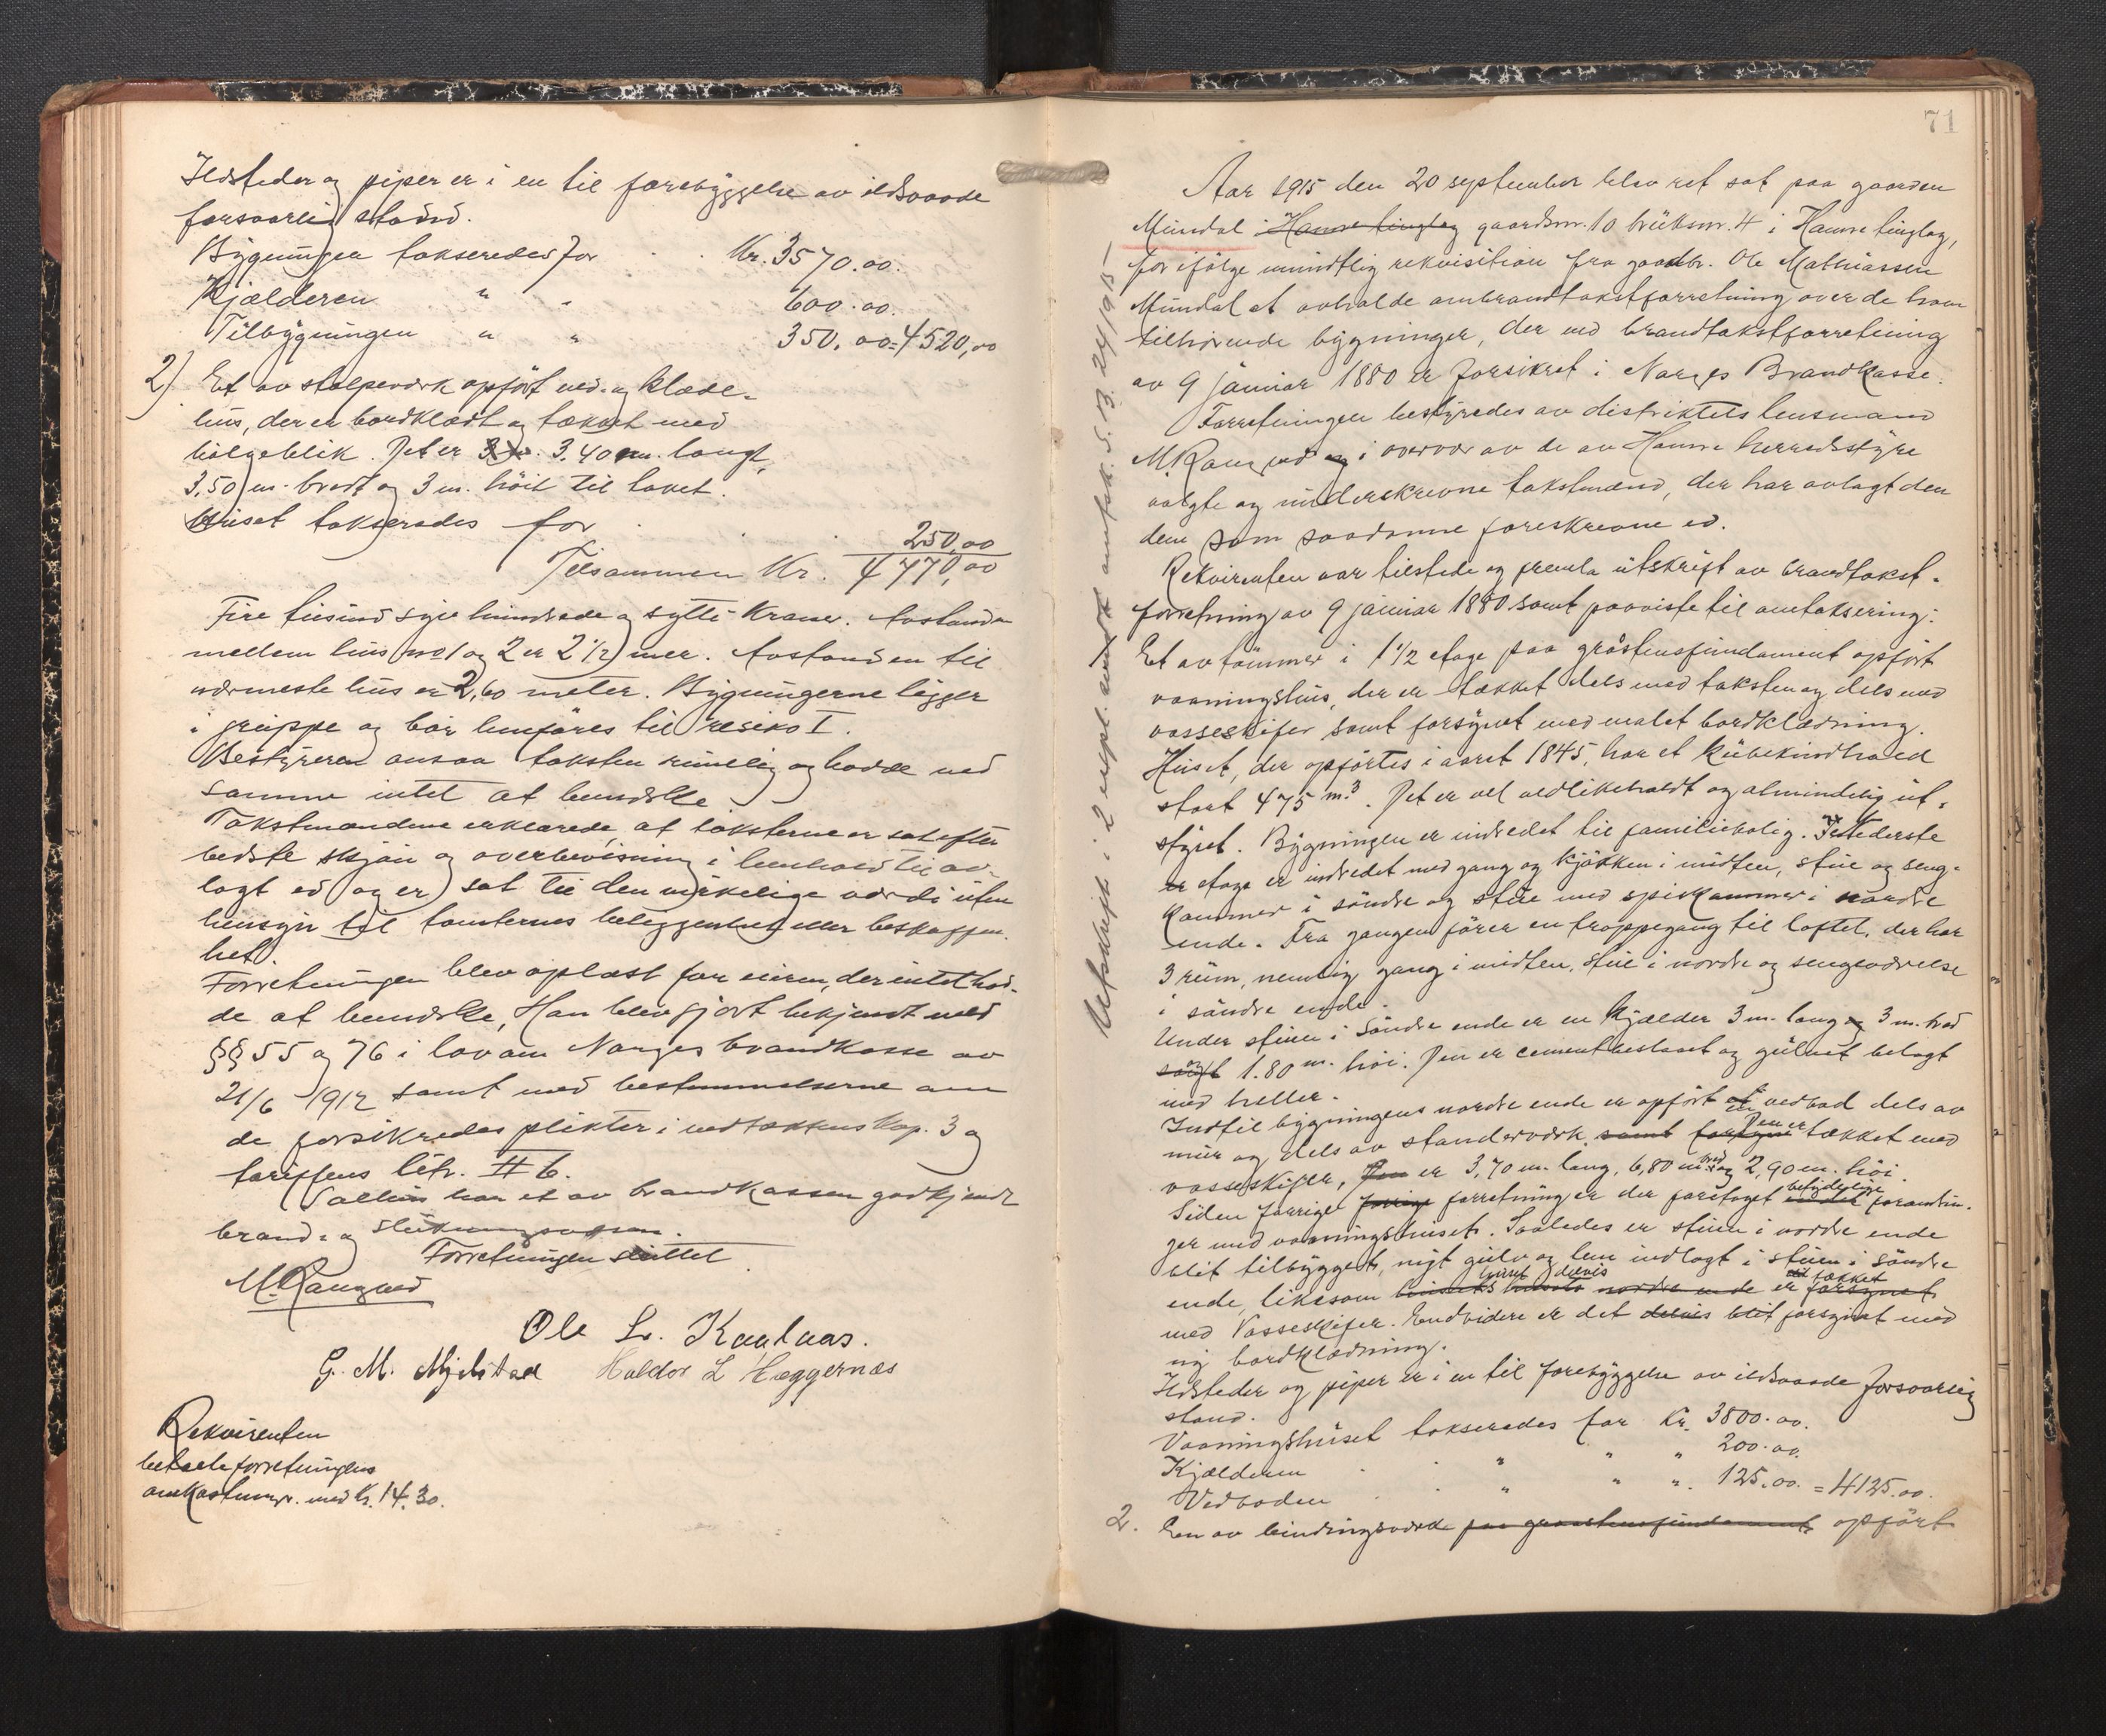 Ildsteder og piper er i en til forebyggelse av ildsvaade
forsvarlig stand.
Bygningen takseredes for . . Kr. 3570.00.
Kjælderen " " 600.00.
Tilbygningen " " 350.00 = 4520,00
2) Et av stolpeverk opført ved- og klæde-
hus, der er bordklædt og tækket med
bølgeblik. Det er 3.40 m. langt,
3,50 m. bredt og 3 m. höit til taket.
Huset takseredes for . . 250,00
Tilsammen Kr. 4770,00
Fire tusind syv hundrede og sytti Kroner. Avstanden
mellem hus no 1 og 2 er 2 1/2 meter. Avstanden til
nærmeste hus er 2,60 meter. Bygningerne ligger
i gruppe og bør henføres til resiko I.
Bestyreren ansaa taksten rimelig og hadde ved
samme intet at bemerke.
Takstmændene erklærede, at taksterne er sat efter
bedste skjøn og overbevisning i henhold til av-
lagt ed og er sat til den virkelige værdi uten
hensyn til tomternes beliggenhet eller beskaffen-
het.
Forretningen blev oplæst for eieren, der intet had-
de at bemerke. Han blev gjort bekjendt med
§§ 55 og 76 i lov om Norges brandkasse av
21/6 1912 samt med bestemmelserne om
de forsikredes plikter i vedtækternes Kap. 3 og
tariffens litr. H 6.
har et av brandkassen godkjendt
brand- og slukningsvæsen.
Forretningen sluttet.
M. Rangved
Ole L. Kaalaas.
G. M. Mjelstad Haldor L Heggernæs
Rekvirenten
betaalte forretningens
omkostninger med Kr. 14.30.
71
Utskrift i 2 expl. sendt amtsk. S. B. 24/9 1915
Aar 1915 den 20 september blev ret sat paa gaarden
Mundal i Hamre tinglag gaardsnr. 10 bruksnr. 4 i Hamre tinglag,
for ifölge mundtlig rekvisition fra gaardbr. Ole Mathiassen
Mundal at avholde ombrandtakstforretning over de ham
tilhørende bygninger, der ved brandtakstforretning
av 9 januar 1880 er forsikret i Norges Brandkasse.
Forretningen bestyredes av distriktets lensmand
M. Rangved og i overvær av de av Hamre herredsstyre
valgte og underskrevne takstmænd, der har avlagt den
dem som saadanne foreskrevne ed.
Rekvirenten var tilstede og fremla utskrift av brandtakst-
forretning av 9 januar 1880 samt paaviste til omtaksering:
Et av tømmer i 1 1/2 etage paa graastensfundament opført
vaaningshus, der er tækket dels med taksten og dels med
vosseskifer samt forsynet med malet bordklædning.
Huset, der opførtes i aaret 1845, har et kubekindhold
stort 475 m.3. Det er vel vedlikeholdt og almindelig ut-
styret. Bygningen er indredet til familiebolig. I nederste
er etage er indredet med gang og kjökken i midten, stue og senge-
kammer i söndre og stue med spiskammer i nordre
ende. Fra gangen förer en trappegang til loftet, der har
3 rum, nemlig gang i midten, stue i nordre og sengeværelse
i söndre ende.
Under stuen i söndre ende er en kjælder 3 m. lang og 3 m. bred
og 1.80 m. höi. Den er cementbestaaet og gulvet belagt
med heller.
Indtil bygningens nordre ende er opført et en vedbod dels av
mur og dels av standerværk samt forsynet Den er tækket med
vosseskifer, Den er 3,70 m. lang, 6,80 m. bred og 2,90 m. höi.
Siden forrige forrige forretning er der foretaget endel betydelige forandrin-
ger med vaaningshuset. Saaledes er stuen i nordre ende
blit tilbygget, nyt gulv og lem indlagt i stuen i söndre
ende, likesom husets husets huset delvis nordre ende er forsynet tækket
med Vosseskifer. Endvidere er det delvis blit forsynet med
ny bordklædning.
Ildsteder og piper er i en til forebyggelse av ildsvaade forsvarlig
stand.
Vaaningshuset takseredes for Kr. 3800.00.
Kjælderen . . " " " 200.00.
Vedboden . . " " " 125.00. = 4125.00.
2. En av bindingsværk paa graastensfundament opført